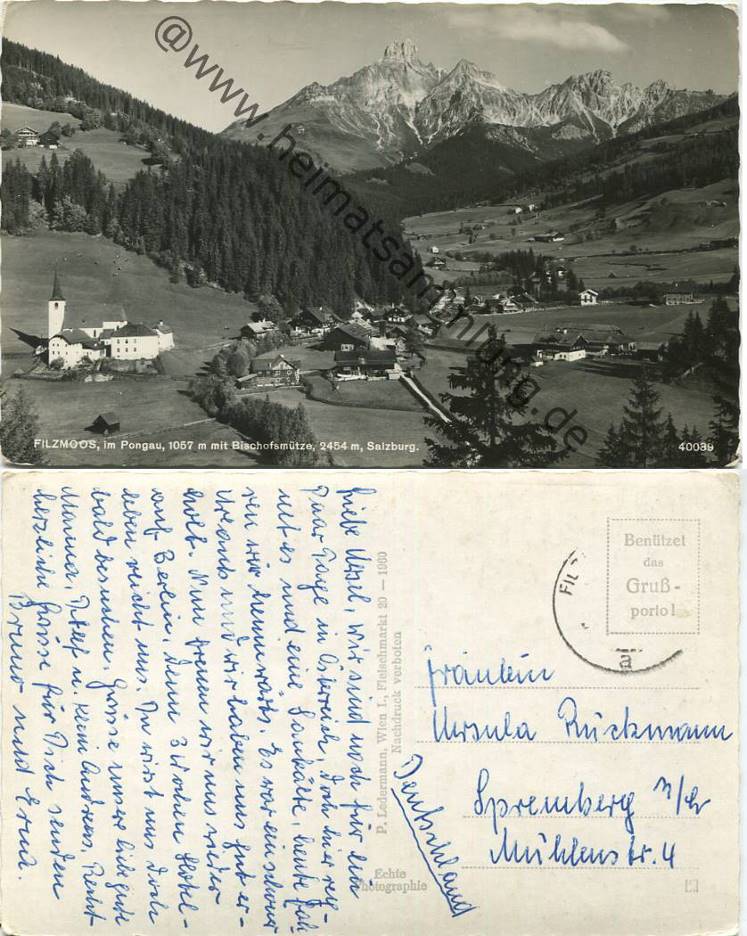 @www.heimatsammlung.de
FILZMOOS, im Pongau, 1057 m mit Bischofsmütze, 2454 m, Salzburg.
40039
Liebe Ursel, wir sind noch für ein
paar Tage in Österreich, doch hier reg-
net es und eine Saukälte, heute fah-
ren wir heimwärts. Es war ein schöner
Urlaub und wir haben uns gut er-
holt. Nun freuen wir uns wieder
auf Berlin, denn 3 Wochen
leben reicht uns. Du wirst uns doch
bald besuchen. Grüsse unsere liebe gute
Mama, Detlef u. klein Andreas. Recht
herzliche Grüsse für Dich senden
Bruno und Erna.
P. Ledermann, Wien I., Fleischmarkt 20 — 1960
Nachdruck verboten
Echte
Photographie
Benützet
das
Gruß-
porto!
FILZ
a
Fräulein
Ursula Rückmann
Spremberg N/L
Mühlenstr. 4
Deutschland